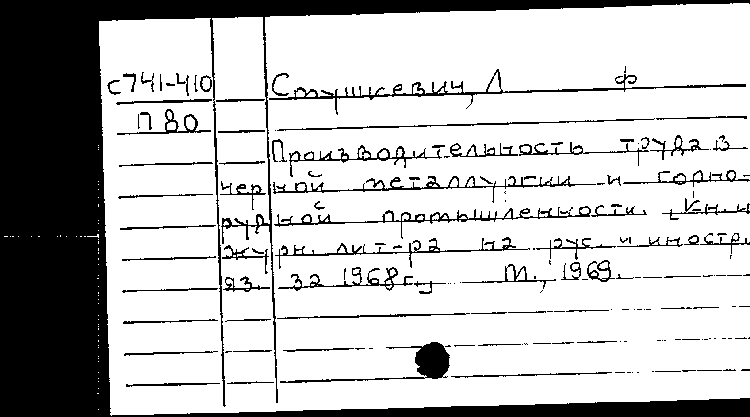 с741-410 Стушкевич, Л ф
П 80
Производительность труда в
черной металлургии и горно-
рудной промышленности. [Кн. и
журн. лит-ра на рус. и иностр.
яз. за 1968 г.] М., 1969.